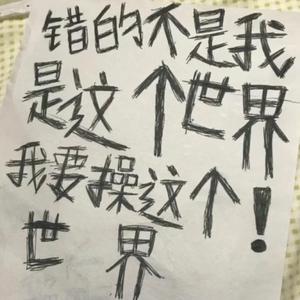 错的不是我
是这个世界
我要操这个!
世界